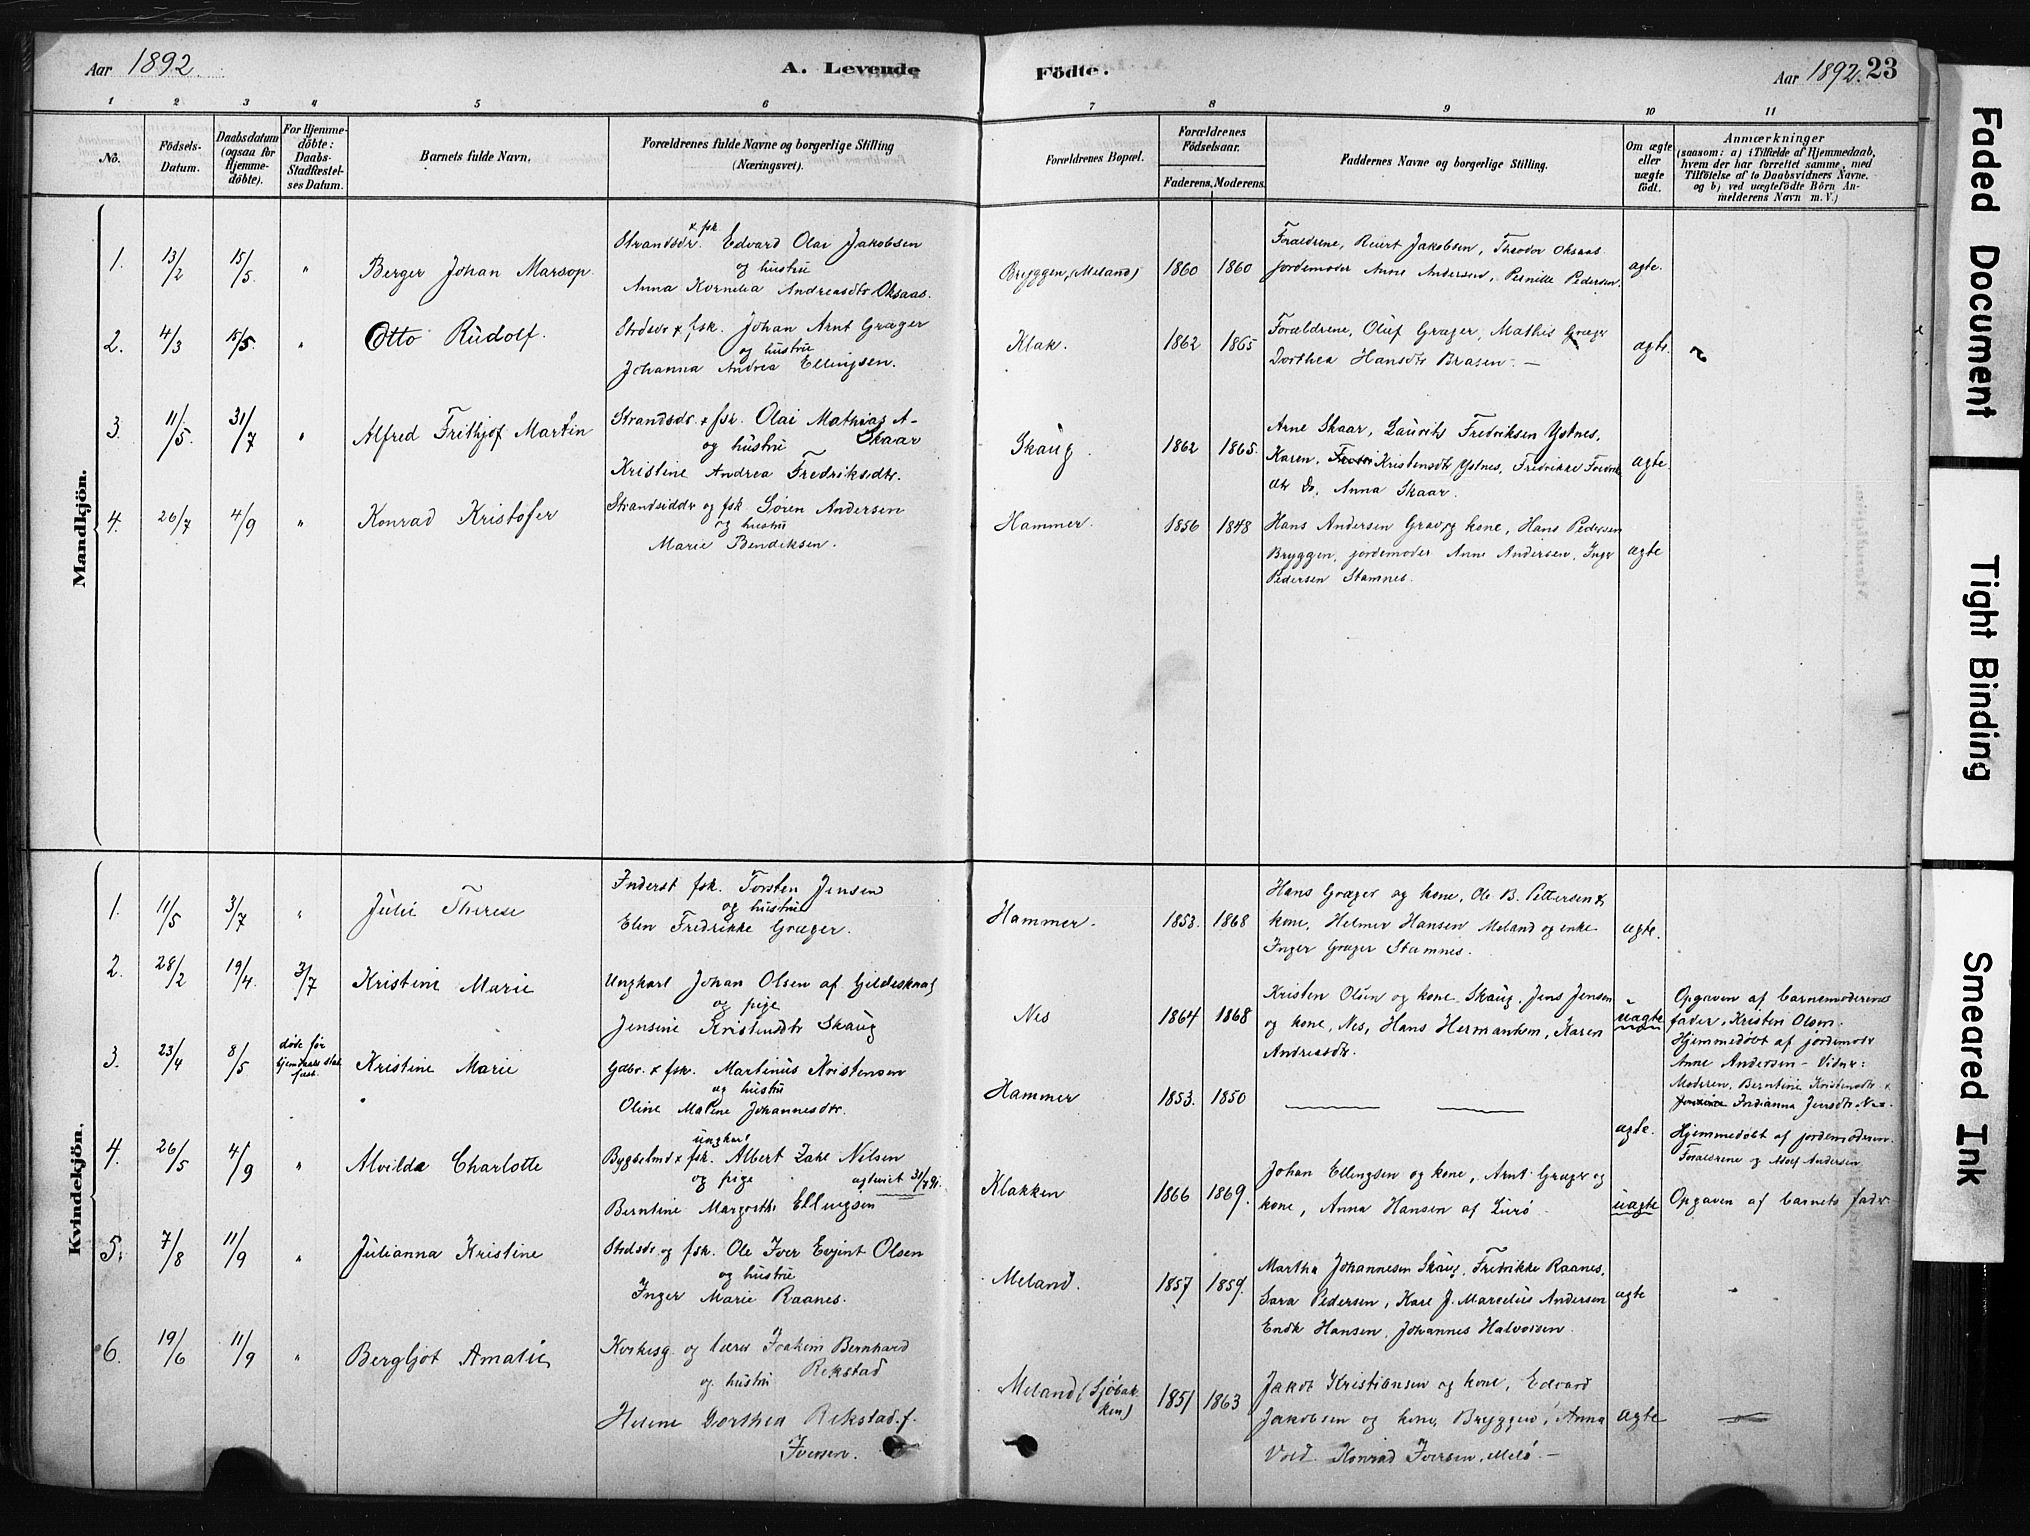 Aar 1892.
A. Levende
Födte.
Aar 1892. 23
1 2 3 4 5 6 7 8 9 10 11
No.
Födsels-
Datum.
Daabsdatum
(ogsaa for
Hjemme-
döbte).
For Hjemme-
döbte:
Daabs-
Stadfæstel-
ses Datum.
Barnets fulde Navn.
Forældrenes fulde Navne og borgerlige Stilling
(Næringsvei).
Forældrenes Bopæl.
Forældrenes
Födselsaar.
Faderens. Moderens.
Faddernes Navne og borgerlige Stilling.
Om ægte
eller
uægte
födt.
Anmærkninger
(saasom: a) i Tilfælde af Hjemmedaab,
hvem der har forrettet samme, med
Tilföielse af to Daabsvidners Navne.
og b) ved uægtefödte Börn An-
melderens Navn m. V.)
Mandkjön.
1. 13/2 15/5 " Berger Johan Marsop.
Strandsdr. + fsk Edvard Olai Jakobsen
og hustru
Anna Kornelia Andreasdtr Oksaas.
Bryggen, (Meland) 1860 1860
Forældrene, Reiert Jakobsen, Theodor Oksaas
jordemoder Anne Andersen, Pernille Pedersen.
ægte.
2. 4/3 15/5. " Otto Rudolf.
Strdsdr + fsk. Johan Arnt Græger
og hustru
Johanna Andrea Ellingsen.
Klak. 1862 1865
Forældrene, Oluf Græger, Mathis Græger
Dorthea Hansdtr Brasen. —
ægte.
3 11/5. 31/7 " Alfred Frithjof Martin
Strandsdr + fsk. Olai Mathias A-
og hustru Skaar
Kristine Andrea Fredriksdtr.
Skaug. 1862 1865.
Arne Skaar, Laurits Fredriksen Ystnes,
Karen, Kristensdtr Ystnes, Fredrikke Fredrik
dtr Do, Anna Skaar.
ægte.
4. 26/7 4/9 " Konrad Kristofer
Strandsiddr og fsk Søren Andersen
og hustru
Marie Bendiksen.
Hammer. 1856 1848
Hans Andersen Grav og kone, Hans Pedersen
Bryggen, jordemoder Anne Andersen, Inger
Pedersen Stamnes.
ægte
Kvindekjön.
1. 11/5 3/7 " Julie Therese
Inderst fsk. Torsten Jensen
og hustru
Elen Fredrikke Græger.
Hammer. 1853. 1868
Hans Græger og kone, Ole B. Pettersen &
kone, Helmer Hansen Meland og enke
Inger Græger Stamnes.
ægte.
2. 28/2 19/4. 3/7 Kristine Marie
Ungkarl Johan Olsen af Gildeskaal
og pige
Jensine Kristensdtr Skaug
Nes 1864 1868
Kristen Olsen og kone, Skaug, Jens Jensen
og kone, Nes, Hans Hermanksen, Karen
Andreasdtr.
uægte
Opgaven af barnemoderens
fader, Kristen Olsen.
Hjemmedøbt af jordemodr
Anne Andersen – Vidner:
Moderen, Berntine Kristensdtr +
Indianna Jensdtr. Nes.
3. 23/4 8/5 døde før
Kristine Marie
Gdbr. + fsk. Martinus Kristensen
og hustru
Oline Maline Johannesdtr.
Hammer 1853. 1850
ægte.
Hjemmedøbt af jordemoderen.
Forældrene og Adolf Andersen
4. 26/5 4/9 " Alvilda Charlotte
ungkarl
Bygselmd + fsk. Albert Zahl Nilsen
og pige
Berntine Margrethe Ellingsen
Klakken 1866 1869.
Johan Ellingsen og kone, Arnt Græger og
kone, Anna Hansen af Lurø
uægte Opgaven af barnets fader
5. 7/8 11/9 " Julianna Kristine
Strdsdr og fsk. Ole Iver Evjint Olsen
og hustru
Inger Marie Raanes.
Meland. 1857 1859.
Martha Johannesen Skaug, Fredrikke Raanes,
Sara Pedersen, Karl J. Marcelius Andersen
Endk Hansen, Johannes Halvorsen.
ægte
6. 19/6 11/9 " Bergljot Amalie
Kirkesg. og lærer Joakim Bernhard
og hustru Rekstad
Helene Dorthea Rekstad. f.
Iversen.
Meland (Sjøbak-
ken) 1851 1863
Jakob Kristiansen og kone, Edvard
Jakobsen og kone, Bryggen, Anna
Vold. Konrad Iversen, Melø. —
ægte
Faded Document
Tight Binding
Smeared Ink